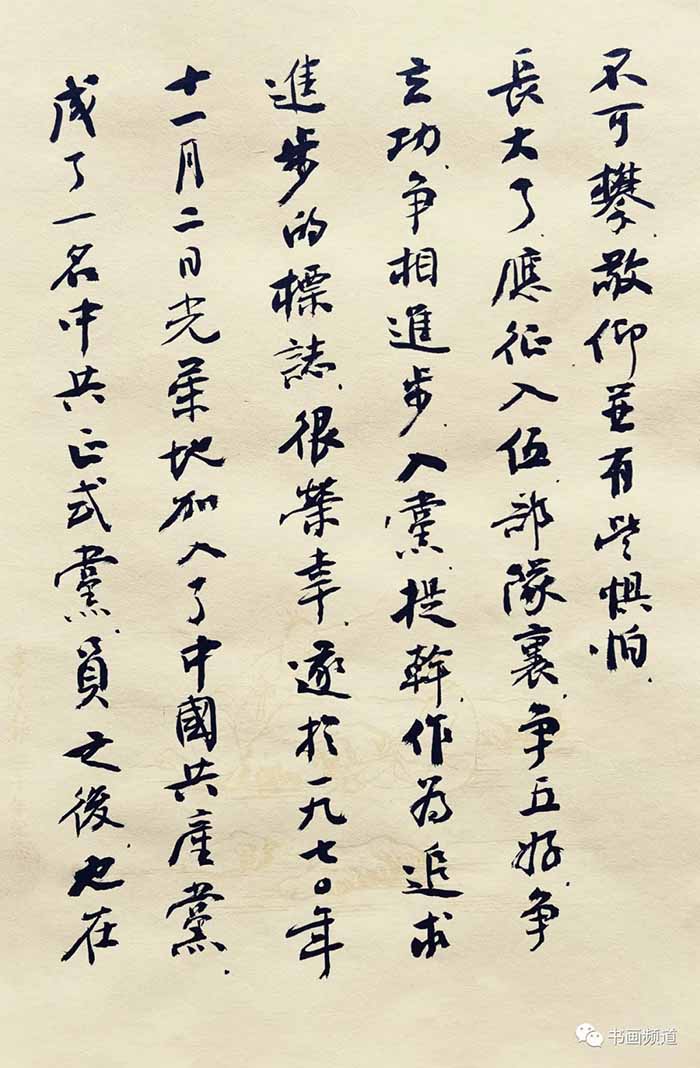 不可攀敬仰並有些惧怕
長大了應征入伍部隊裏争五好争
立功争相進步入黨提幹作為追求
進步的標誌很榮幸遂於一九七〇年
十一月二日光榮地加入了中國共産黨
成了一名中共正式黨員之後也在
书画频道